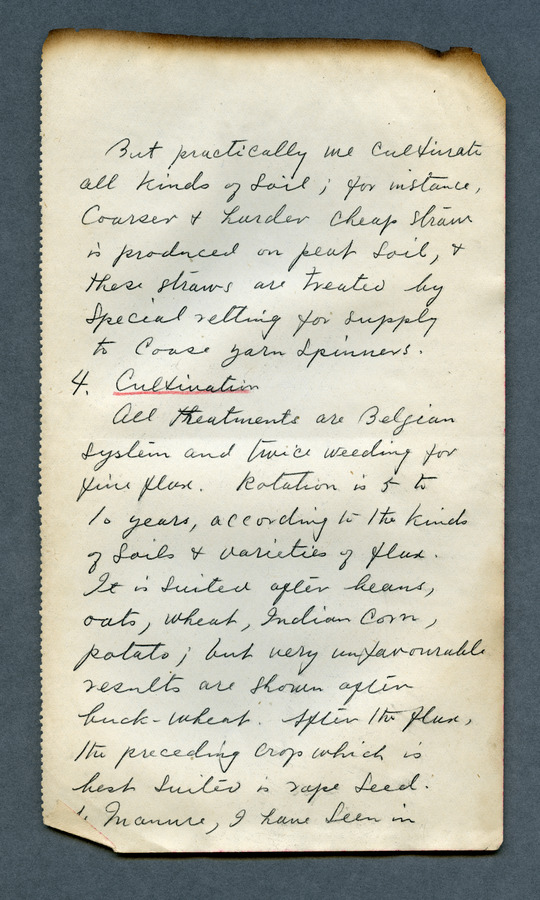 But practically we cultivate
all kinds of soil; for instance,
Coarser & harder cheap straw
is produced on peat soil, &
these straws are treated by
special retting for supply
to Coase yarn spinners.
4. Cultivation
All treatments are Belgian
system and twice weeding for
fine flax. Rotation is 5 to
10 years, according to the kinds
of soils & varieties of flax.
It is suited after beans,
oats, wheat, Indian Corn,
potato; but very unfavourable
results are shown after
buck-wheat. After the flax,
the preceding crop which is
best suited is rape seed.
Manure, I have seen in